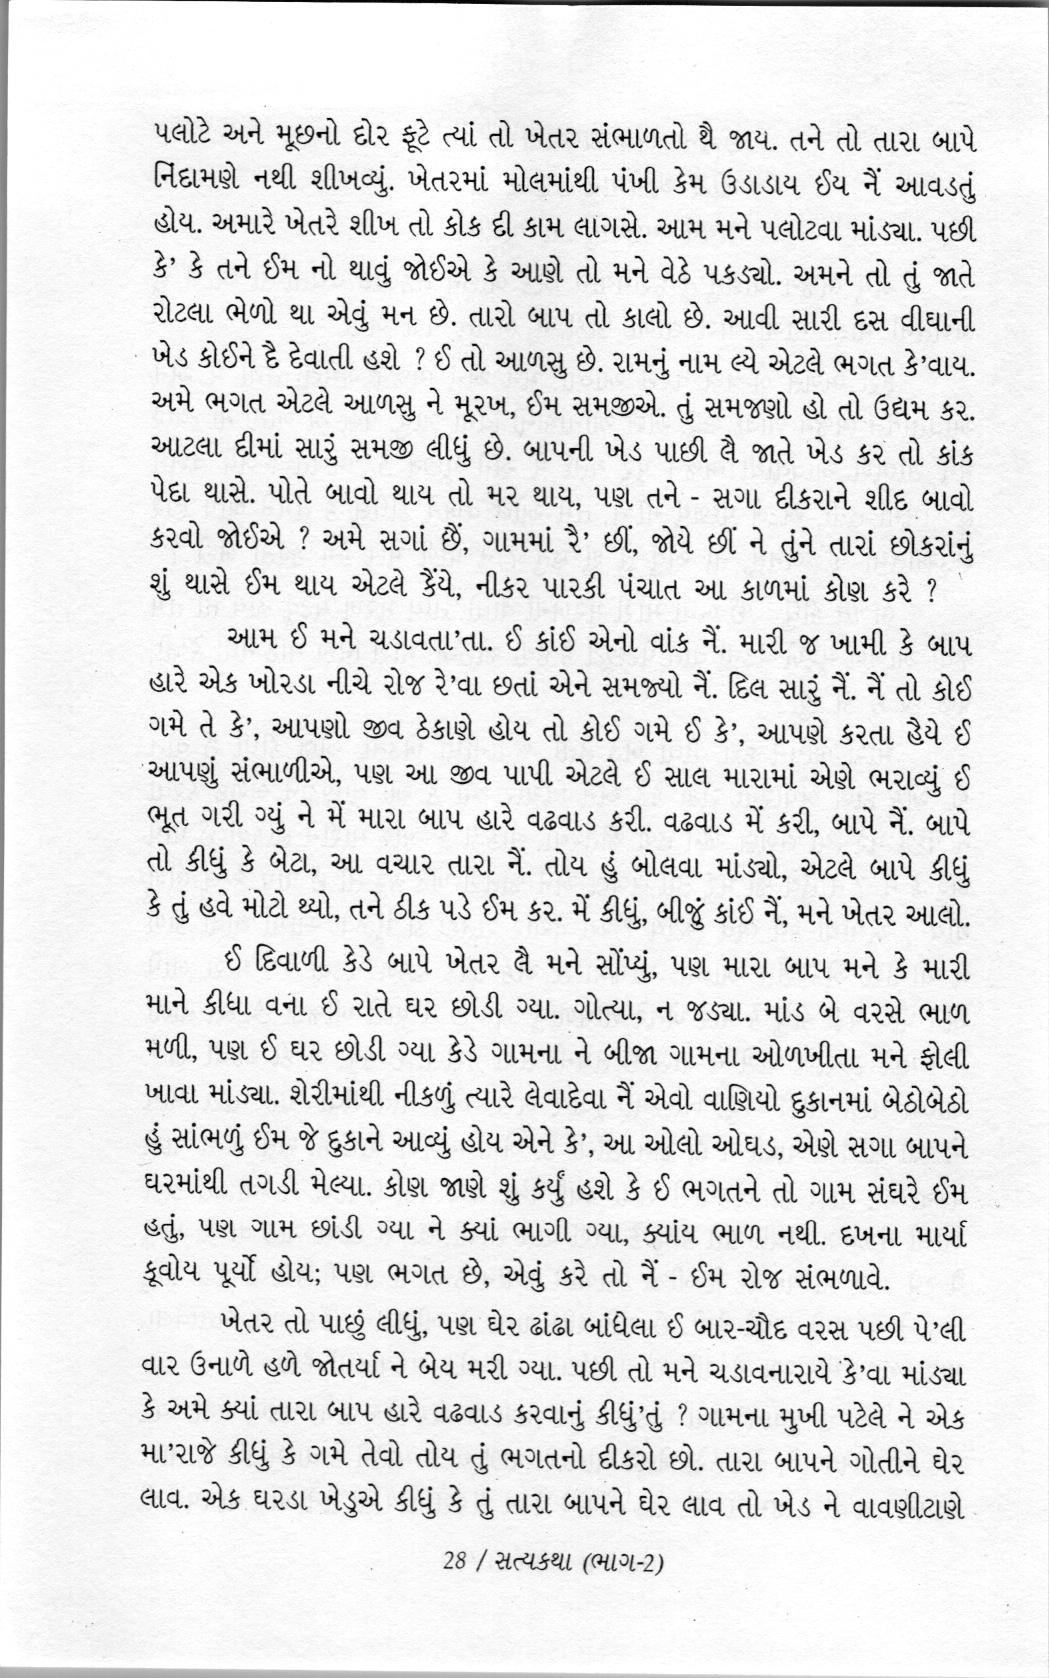 પલોટે અને મૂછનો દોર ફૂટે ત્યાં તો ખેતર સંભાળતો થૈ જાય. તને તો તારા બાપે
નિંદામણે નથી શીખવ્યું. ખેતરમાં મોલમાંથી પંખી કેમ ઉડાડાય ઈય નૈં આવડતું
હોય. અમારે ખેતરે શીખ તો કોક દી કામ લાગસે. આમ મને પલોટવા માંડ્યા. પછી
કે’ કે તને ઈમ નો થાવું જોઈએ કે આણે તો મને વેઠે પકડ્યો. અમને તો તું જાતે
રોટલા ભેળો થા એવું મન છે. તારો બાપ તો કાલો છે. આવી સારી દસ વીઘાની
ખેડ કોઈને દૈ દેવાતી હશે ? ઈ તો આળસુ છે. રામનું નામ લ્યે એટલે ભગત કે’વાય.
અમે ભગત એટલે આળસુ ને મૂરખ, ઈમ સમજીએ. તું સમજણો હો તો ઉદ્યમ કર.
આટલા દીમાં સારું સમજી લીધું છે. બાપની ખેડ પાછી લૈ જાતે ખેડ કર તો કાંક
પેદા થાસે. પોતે બાવો થાય તો મર થાય, પણ તને - સગા દીકરાને શીદ બાવો
કરવો જોઈએ ? અમે સગાં છૈં, ગામમાં રૈ’ છીં, જોયે છીં ને તુંને તારાં છોકરાંનું
શું થાસે ઈમ થાય એટલે કૈંયે, નીકર પારકી પંચાત આ કાળમાં કોણ કરે ?
આમ ઈ મને ચડાવતા’તા. ઈ કાંઈ એનો વાંક નૈં. મારી જ ખામી કે બાપ
હારે એક ખોરડા નીચે રોજ રે’વા છતાં એને સમજ્યો નૈં. દિલ સારું નૈં. નૈં તો કોઈ
ગમે તે કે’, આપણો જીવ ઠેકાણે હોય તો કોઈ ગમે ઈ કે’, આપણે કરતા હૈયે ઈ
આપણું સંભાળીએ, પણ આ જીવ પાપી એટલે ઈ સાલ મારામાં એણે ભરાવ્યું ઈ
ભૂત ગરી ગ્યું ને મેં મારા બાપ હારે વઢવાડ કરી. વઢવાડ મેં કરી, બાપે નૈં. બાપે
તો કીધું કે બેટા, આ વચાર તારા નૈં. તોય હું બોલવા માંડ્યો, એટલે બાપે કીધું
કે તું હવે મોટો થ્યો, તને ઠીક પડે ઈમ કર. મેં કીધું, બીજું કાંઈ નૈં, મને ખેતર આલો.
ઈ દિવાળી કેડે બાપે ખેતર લૈ મને સોંપ્યું, પણ મારા બાપ મને કે મારી
માને કીધા વના ઈ રાતે ઘર છોડી ગ્યા. ગોત્યા, ન જડ્યા. માંડ બે વરસે ભાળ
મળી, પણ ઈ ઘર છોડી ગ્યા કેડે ગામના ને બીજા ગામના ઓળખીતા મને ફોલી
ખાવા માંડ્યા. શેરીમાંથી નીકળું ત્યારે લેવાદેવા નૈં એવો વાણિયો દુકાનમાં બેઠોબેઠો
હું સાંભળું ઈમ જે દુકાને આવ્યું હોય એને કે’, આ ઓલો ઓઘડ, એણે સગા બાપને
ઘરમાંથી તગડી મેલ્યા. કોણ જાણે શું કર્યું હશે કે ઈ ભગતને તો ગામ સંઘરે ઈમ
હતું, પણ ગામ છાંડી ગ્યા ને ક્યાં ભાગી ગ્યા, ક્યાંય ભાળ નથી. દખના માર્યા
કૂવોય પૂર્યો હોય; પણ ભગત છે, એવું કરે તો નૈં - ઈમ રોજ સંભળાવે.
ખેતર તો પાછું લીધું, પણ ઘેર ઢાંઢા બાંધેલા ઈ બાર-ચૌદ વરસ પછી પે’લી
વાર ઉનાળે હળે જોતર્યા ને બેય મરી ગ્યા. પછી તો મને ચડાવનારાયે કે’વા માંડ્યા
કે અમે ક્યાં તારા બાપ હારે વઢવાડ કરવાનું કીધું’તું ? ગામના મુખી પટેલે ને એક
મા’રાજે કીધું કે ગમે તેવો તોય તું ભગતનો દીકરો છો. તારા બાપને ગોતીને ઘેર
લાવ. એક ઘરડા ખેડુએ કીધું કે તું તારા બાપને ઘેર લાવ તો ખેડ ને વાવણીટાણે
28 / સત્યકથા (ભાગ-2)